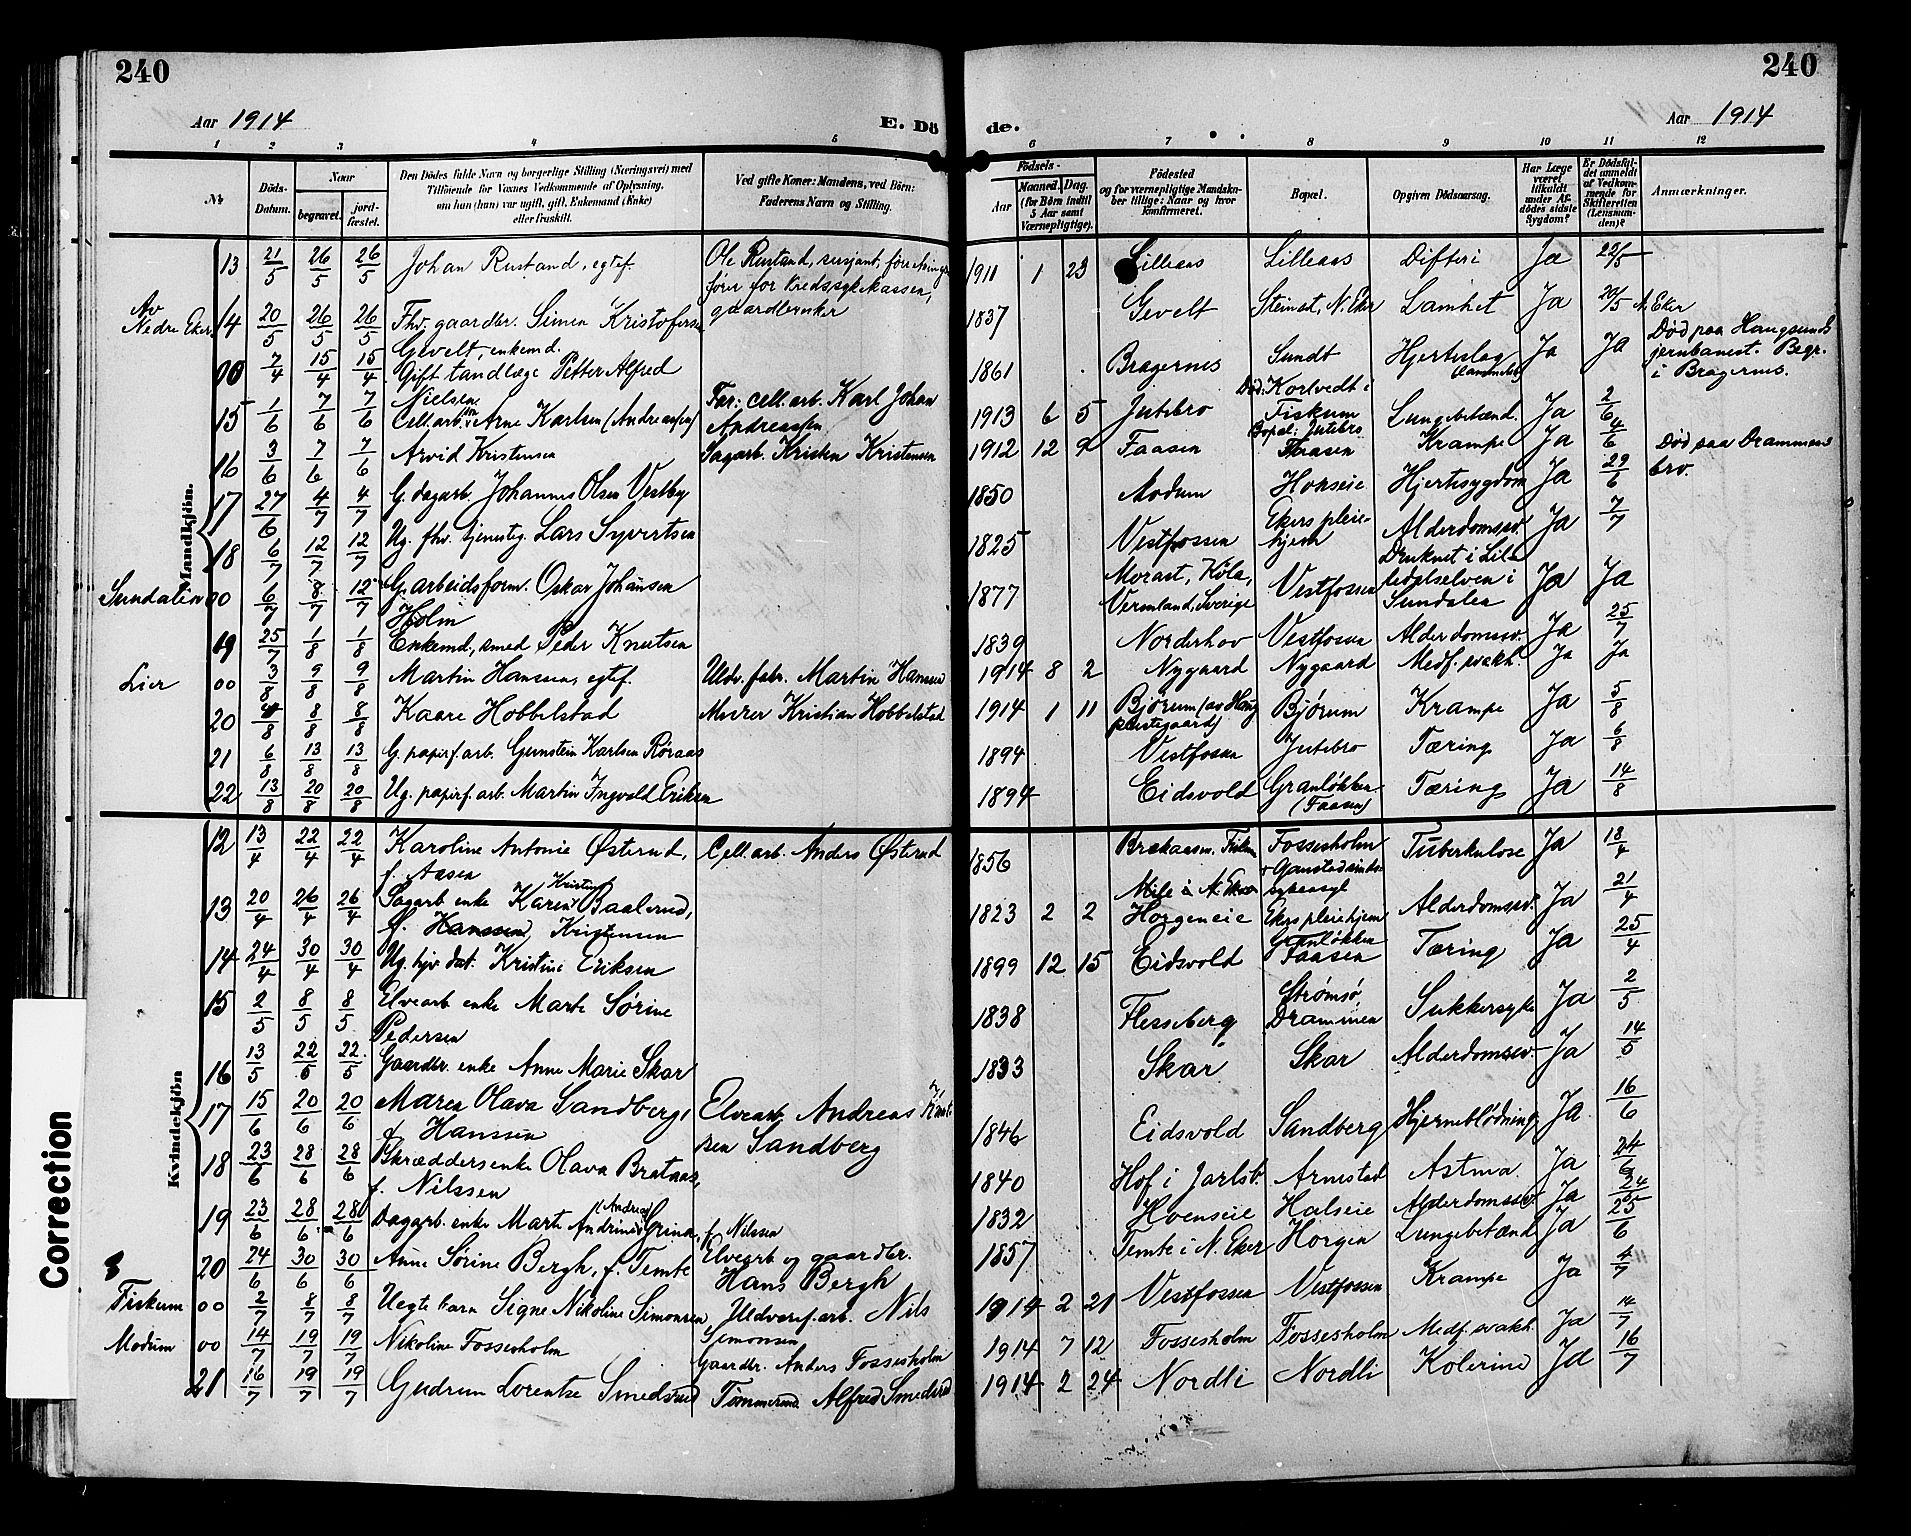 240
240
Aar 1914
E. Dö
de.
Aar 1914
1 2 3 4 5 6 7 8 9 10 11 12
№
Döds-Datum.
Naar
begravet.
jord-fæstet.
Den Dödes fulde Navn og borgerlige Stilling (Næringsvei) med
Tilföiende for Voxnes Vedkommende af Oplysning,
om han (hun) var ugift, gift, Enkemand (Enke)
eller fraskilt.
Ved gifte Koner: Mandens, ved Börn:
Faderens Navn og Stilling.
Födsels-
Aar
Maaned. Dag.
(for Börn indtil
5 Aar samt
Værnepligtige).
Födested
og for værnepligtige Mandska-
ber tillige: Naar og hvor
konfirmeret.
Bopæl.
Opgiven Dödsaarsag.
Har Læge
været
tilkaldt
under Af-
dödes sidste
Sygdom?
Er Dödsfal-
det anmeldt
af Vedkom-
mende for
Skifteretten
(Lensman-
den)?
Anmærkninger.
Mandkjön.
13 21/5 26/5 26/5 Johan Rustand, egtef. Ole Rustand, sersjant, forretnings-
fører for Kredssykekassen,
gaardbruker 1911 1 23 Lilleaas Lilleaas Difteri Ja 22/5
Av Nedre Eker 14 20/5 26/5 26/5 Fhv. gaardbr. Simen Kristofersen
Gevelt, enkemd. 1837 Gevelt Steinset, N. Eker Lamhet Ja 20/5 N. Eker
00 7/4 15/4 15/4 Gift tandlæge Petter Alfred
Nielsen 1861 Bragernes Sundt Hjerteslag Ja Ja Død paa Hougsunds
jernbanest. Begr.
i Bragernes.
15 1/6 7/6 7/6 Cell.arb. Arne Karlsen (Andreassen) Far: cell. arb. Karl Johan
Andreassen 1913 6 5 Jutebro Død: Kortvedt i
Fiskum
Bopæl: Jutebro Lungebetænd. Ja 2/6
16 3/6 7/6 7/6 Arvid Kristensen Sagarb. Kristen Kristensen 1912 12 9 Faasen Faasen Krampe Ja 4/6 Død paa Drammens
bro.
17 27/6 4/7 4/7 G. dagarb. Johannes Olsen Vestby 1850 Modum Hokseie Hjertesygdom Ja 29/6
18 6/7 12/7 12/7 Ug. fhv. tjenesteg. Lars Syvertsen 1825 Vestfossen Ekers pleie-
hjem Alderdomssv. Ja 7/7
Sundalen 00 6/7 8/7 12/7 G. arbeidsform. Oskar Johansen
Holm 1877 Morast, Køla,
Vermland, Sverige Vestfossen Druknet i Lille-
dalselven i
Sundalen Ja Ja
19 25/7 1/8 1/8 Enkemd., smed Peder Knutsen 1839 Norderhov Vestfossen Alderdomssv. Ja 25/7
Lier 00 3/8 9/8 9/8 Martin Hansen, egtef. Uldv. fabr. Martin Hansen 1914 8 2 Nygaard Nygaard Medf. svakh. Ja Ja
20 4/8 8/8 8/8 Kaare Hobbelstad Murer Kristian Hobbelstad 1914 1 11 Bjørum (av Haug
prestegaard) Bjørum Krampe Ja 5/8
21 6/8 13/8 13/8 G. papirf. arb. Gunstein Karlsen Røraas 1894 Vestfossen Jutebro Tæring Ja 6/8
22 13/8 20/8 20/8 Ug. papirf. arb. Martin Ingvald Eriksen 1894 Eidsvold Granløkken
(Faasen) Tæring Ja 14/8
Kvindekjön
12 13/4 22/4 22/4 Karoline Antonie Østerud,
f. Aasen Cell. arb. Anders Østerud 1856 Brekaasen, Fiskum Fossesholm
sykeasyl Tuberkulose Ja 18/4
13 20/4 26/4 26/4 Sagarb. enke Karen Kristine Baalerud,
f. Hanssen, Kristensen 1823 2 2 Mile i N. Eker
Horgeneie Ekers pleiehjem Alderdomssv. Ja 21/4
14 24/4 30/4 30/4 Ug. hjv. dat. Kristine Eriksen 1899 12 15 Eidsvold Granløkken
Faasen Tæring Ja 25/4
15 2/5 8/5 8/5 Elvearb. enke Marte Sørine
Pedersen 1838 Flesseberg Strømsø,
Drammen Sukkersyke Ja 2/5
16 13/5 22/5 22/5 Gaardbr. enke Anne Marie Skar 1833 Skar Skar Alderdomssv. Ja 14/5
17 15/6 20/6 20/6 Maren Olava Sandberg,
f. Hanssen Elvearb. Andreas
sen Sandberg 1846 Eidsvold Sandberg Hjerneblødning Ja 16/6
18 23/6 28/6 28/6 Skræddersenke Olava Brataas,
f. Nilssen 1840 Hof i Jarlsb. Arnestad Astma Ja 24/6
19 23/6 28/6 28/6 Dagarb. enke Marte Andrine (Andrea) Grina, f. Nilssen 1832 Hoenseie Halseie Alderdomssv. Ja 24/6
20 24/6 30/6 30/6 Anne Sørine Bergh, f. Temte Elvearb. og gaardbr.
Hans Bergh 1857 Temte i N. Eker Horgen Lungebetænd Ja 25/6
Fiskum 00 2/7 8/7 8/7 Uegte barn Signe Nikoline Simonsen Uldvaref. arb. Nils
Simonsen 1914 2 21 Vestfossen Vestfossen Krampe Ja 4/7
Modum 00 14/7 19/7 19/7 Nikoline Fossesholm Gaardbr. Anders Fossesholm 1914 7 12 Fossesholm Fossesholm Medf. svakh. Ja 14/7
21 16/7 19/7 19/7 Gudrun Lorentse Smedsrud Tømmermd. Alfred Smedsrud 1914 2 24 Nordli Nordli Kolerine Ja 16/7
Correction